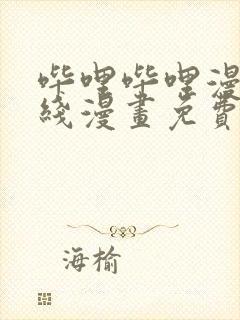 哔哩哔哩漫
线漫畫免費
海榆